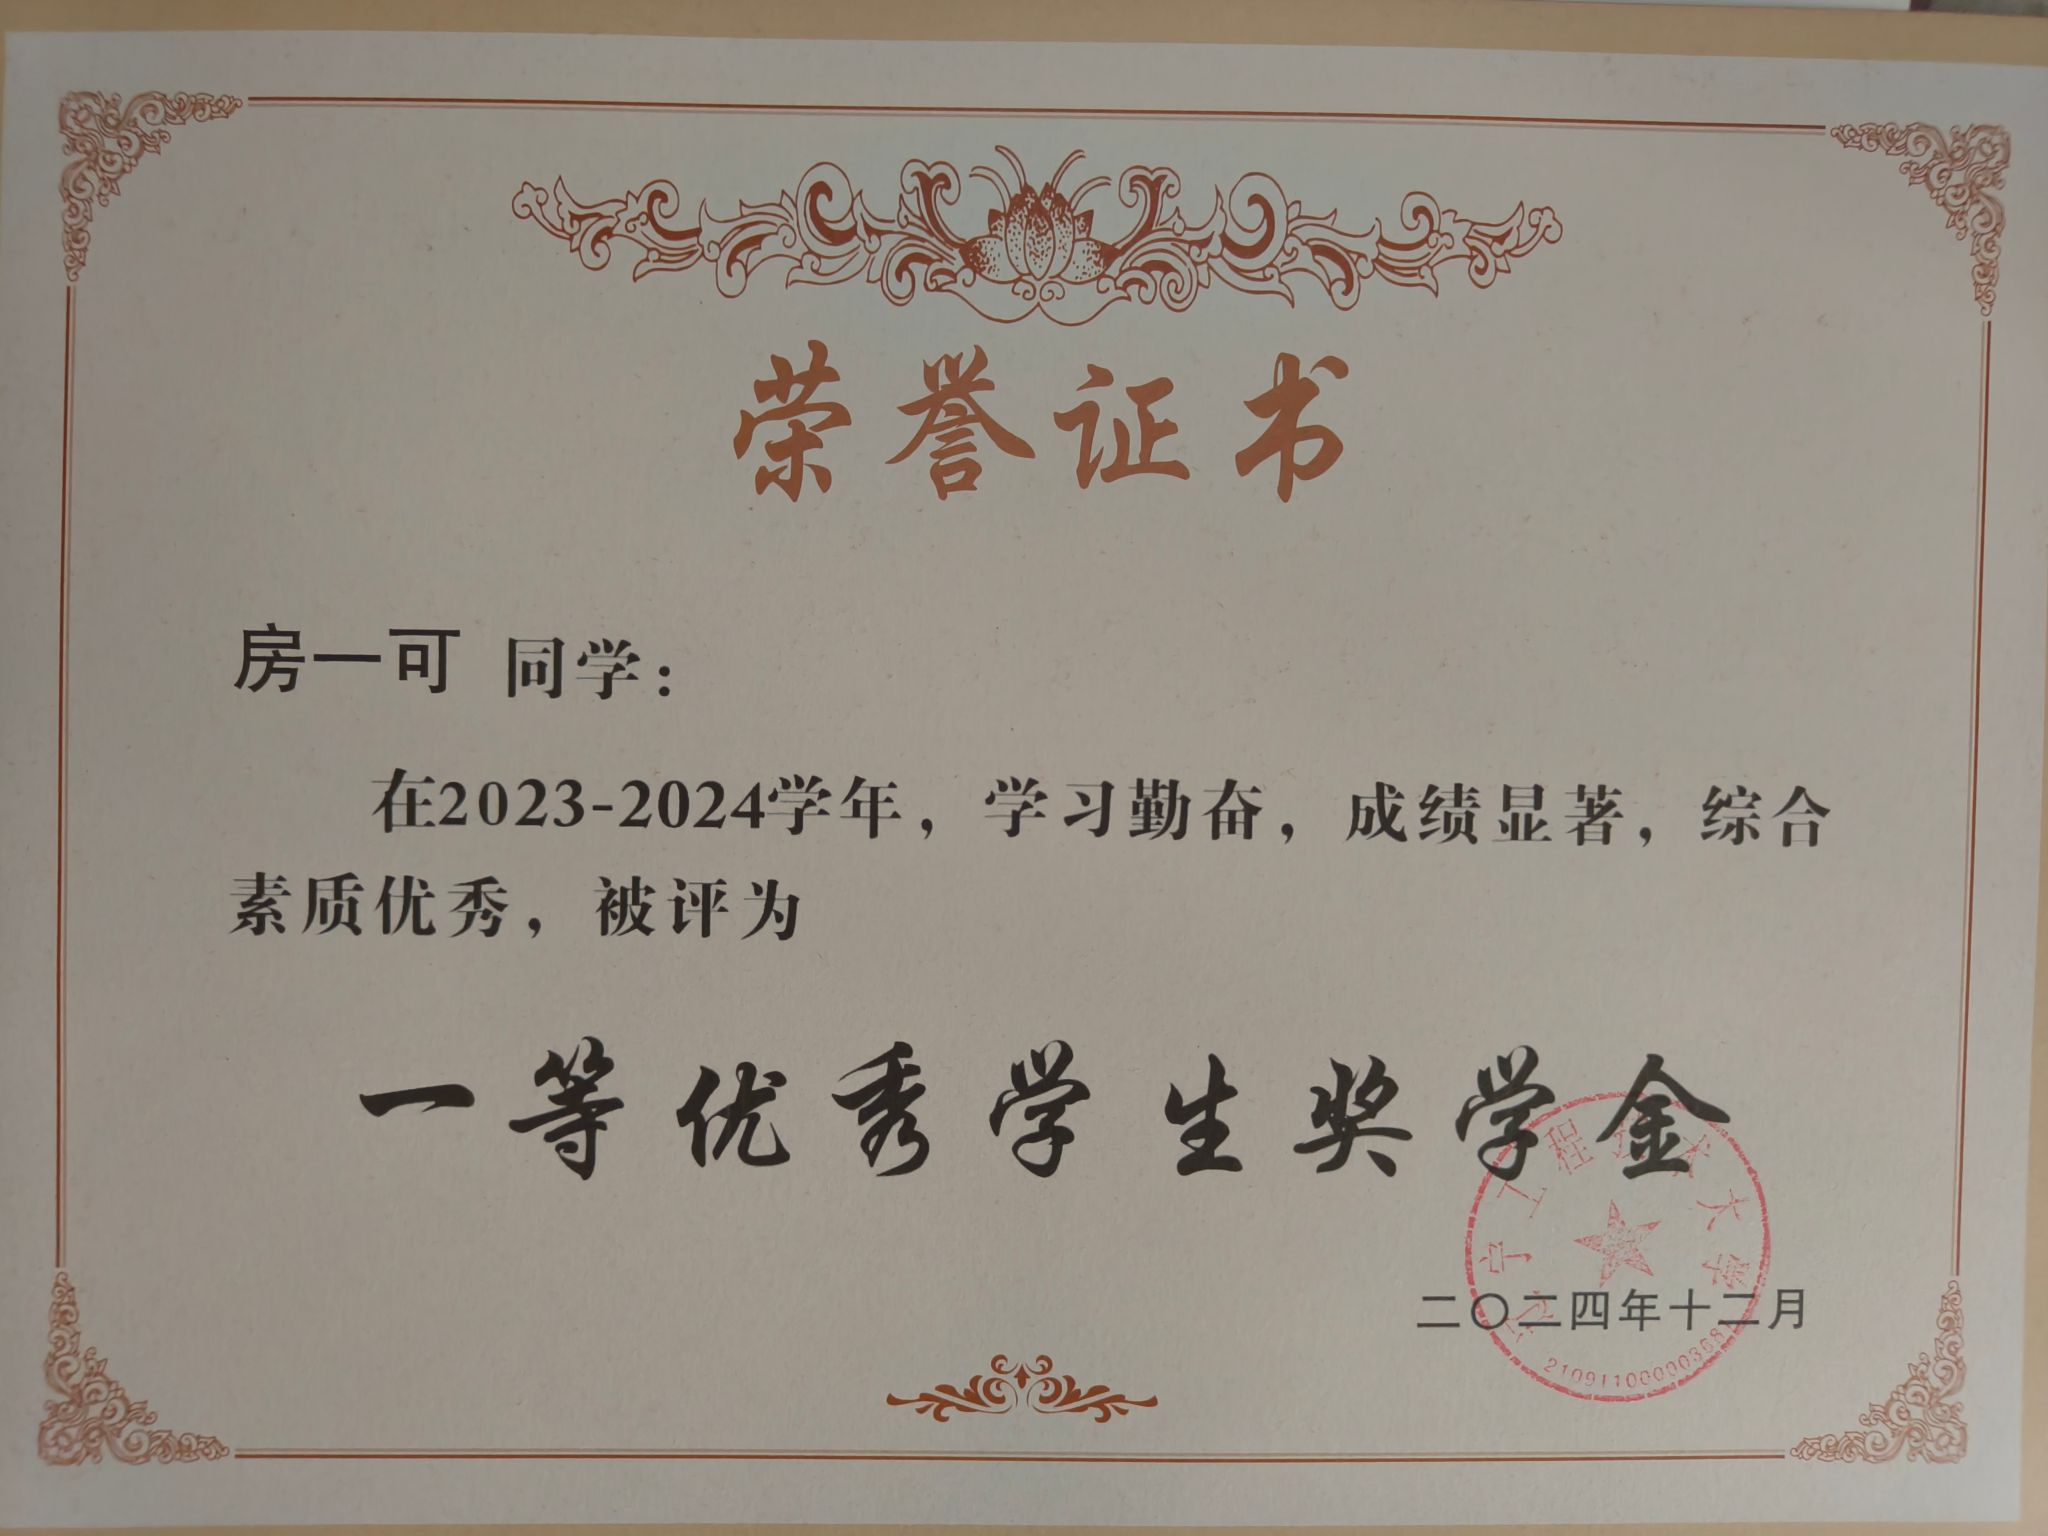 荣誉证书
房一可 同学：
在2023-2024学年，学习勤奋，成绩显著，综合
素质优秀，被评为
一等优秀学生奖学金
辽宁工程技术大学
二〇二四年十二月